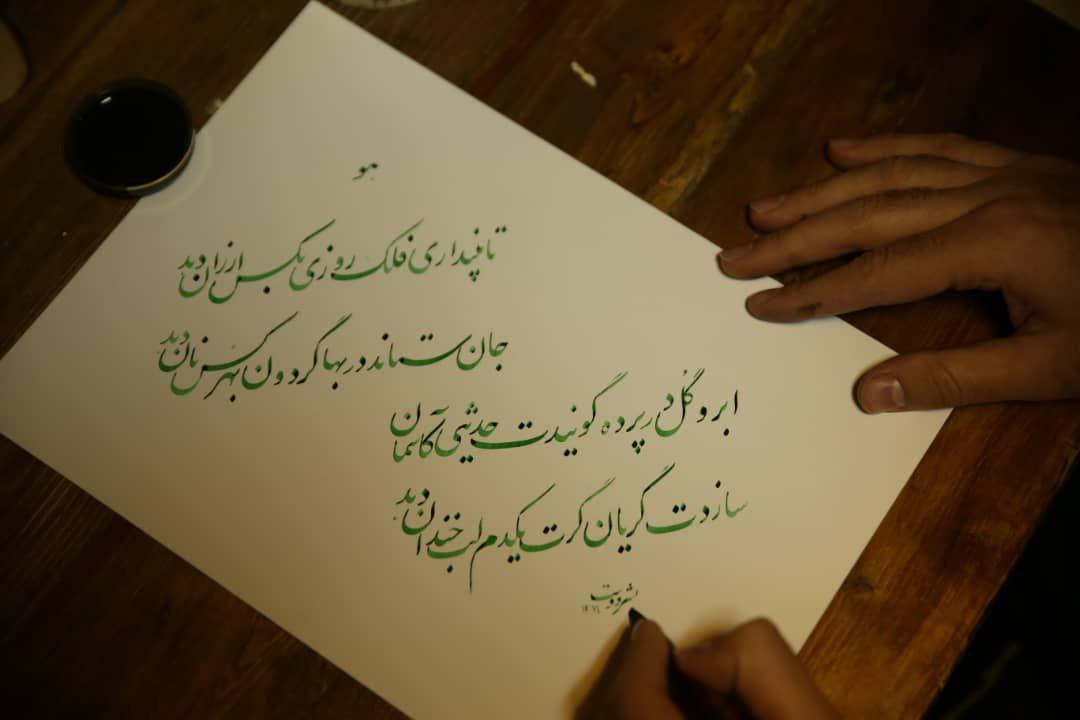 هو
تا نپنداری فلک روزی بکس ارزان دهد
جان ستاند در بها گردون بهر کس نان دهد
ابر و گل در پرده گویندت حدیثی کآسمان
سازدت گریان گرت یکدم لب خندان دهد